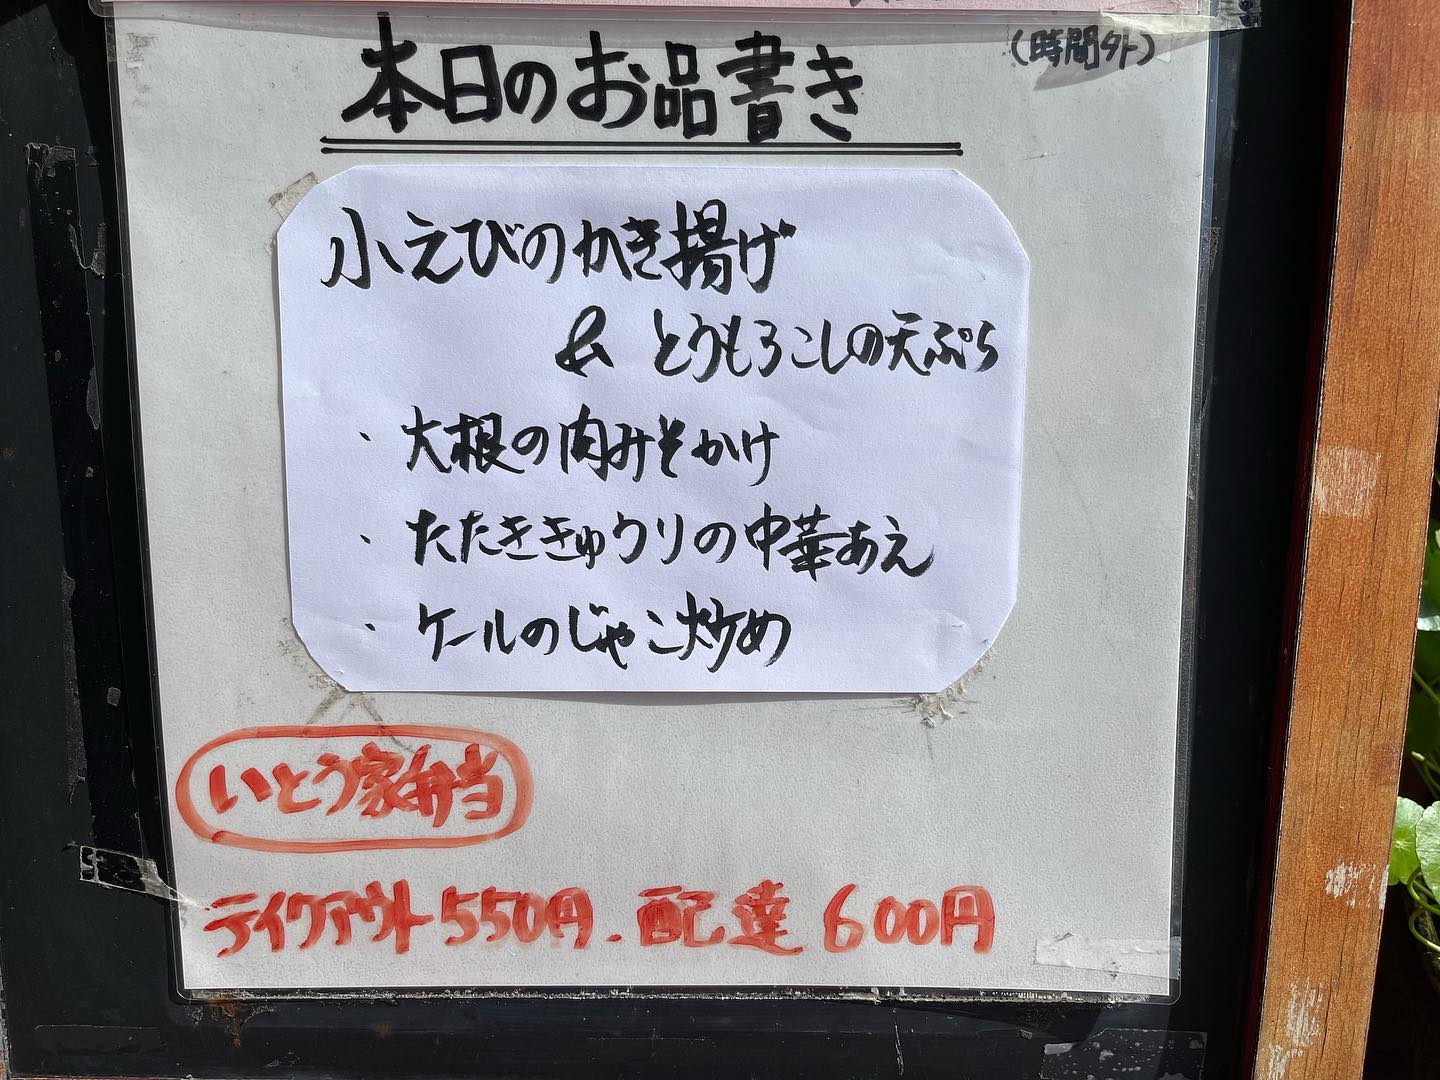 本日のお品書き
(時間外)
小えびのかき揚げ
& とうもろこしの天ぷら
・大根の肉みそかけ
・たたききゅうりの中華あえ
・ケールのじゃこ炒め
いとう家弁当
テイクアウト550円.配達600円